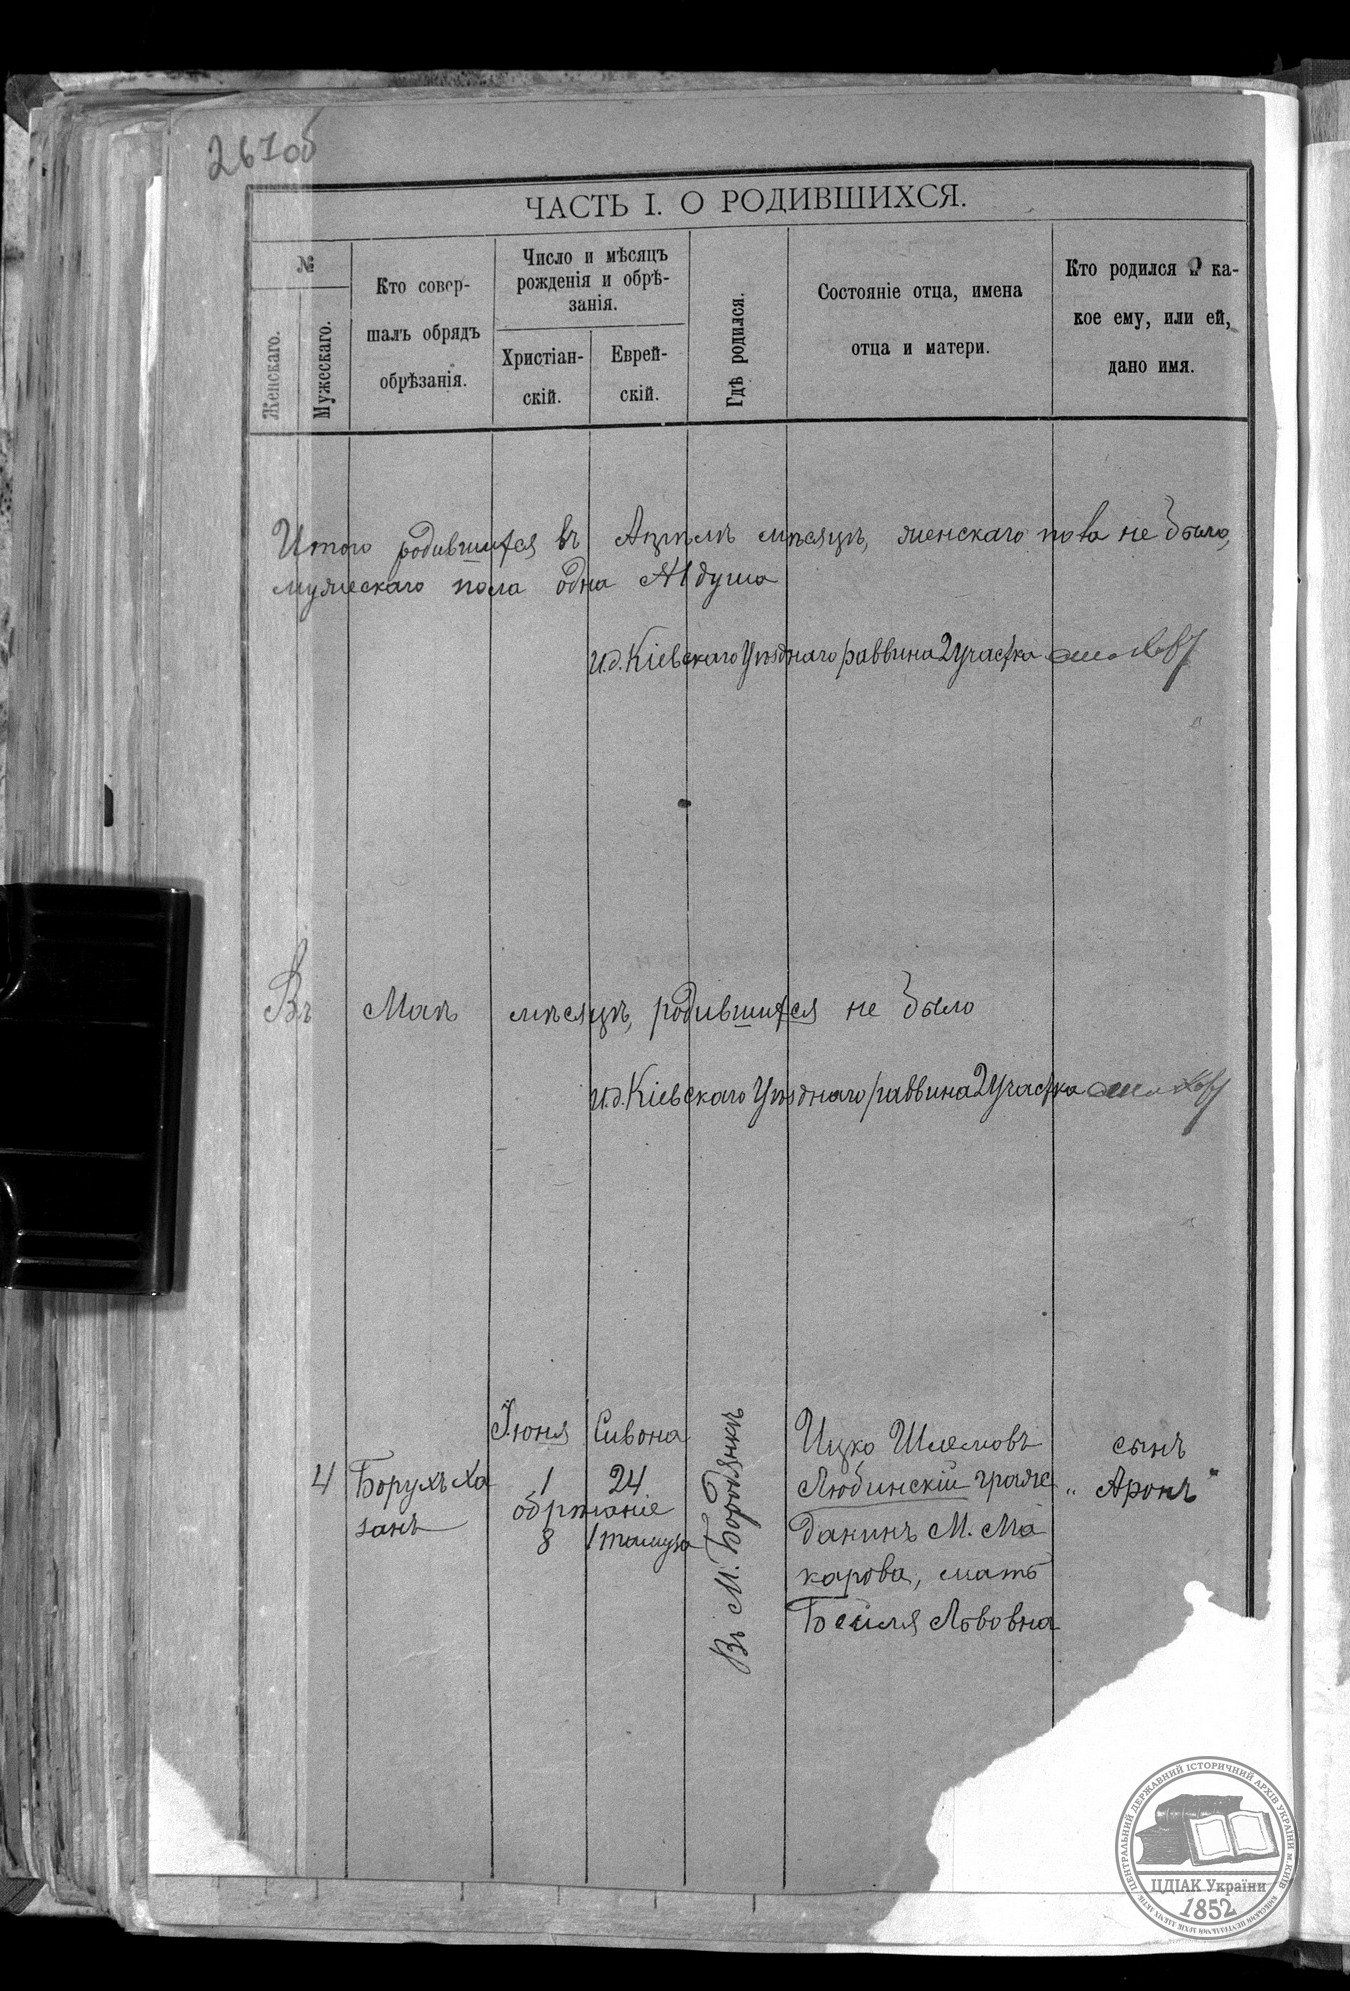 267об
ЧАСТЬ I. О РОДИВШИХСЯ.
№
Женскаго.
Мужескаго.
Кто совер-
шалъ обрядъ
обрѣзанія.
Число и мѣсяцъ
рожденія и обрѣ-
занія.
Христіан-
скій.
Еврей-
скій.
Гдѣ родился.
Состояніе отца, имена
отца и матери.
Кто родился и ка-
кое ему, или ей,
дано имя.
Итого родившихся въ Апрѣлѣ мѣсяцѣ, женскаго пола не было,
мужескаго пола одна №1 душа
И.д. Кіевскаго Уѣзднаго раввина 2 участка
Въ Маѣ мѣсяцѣ, родившихся не было
И.д. Кіевскаго Уѣзднаго раввина 2 участка
4
Борухъ Ха
занъ
Іюня
1
обрѣзаніе
8
Сивона
24
1 тамуза
Въ М. Бородянкѣ
Ицко Шлемовъ
Любинскій граж
данинъ М. Ма
карова, мать
Бейля Львовна
сынъ
„Аронъ"
ЦЕНТРАЛЬНИЙ ДЕРЖАВНИЙ ІСТОРИЧНИЙ АРХІВ УКРАЇНИ м. КИЇВ
ЦДІАК України
1852